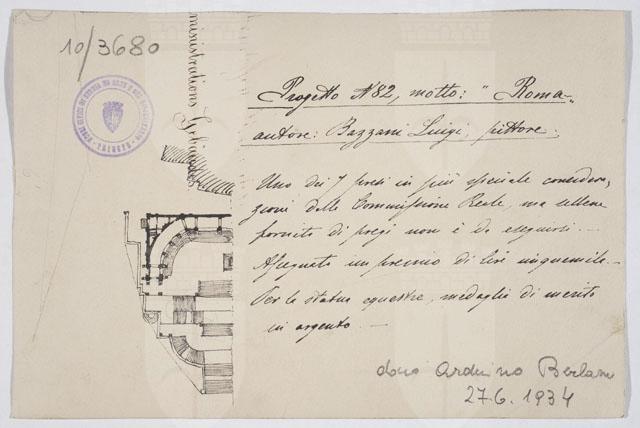 10/3680
ministrations
Progetto N° 82, motto: "Roma".
autore: Bazzani Luigi, pittore.
Uno dei 7 presi in più speciale considera,
zioni dalla Commissione Reale, ma sebbene
fornito di pregi non è da eseguirsi. —
Assegnato un premio di Lire cinquemila. —
Per la statua equestre, medaglia di merito
in argento. —
dono Arduino Berlam
27.6.1934